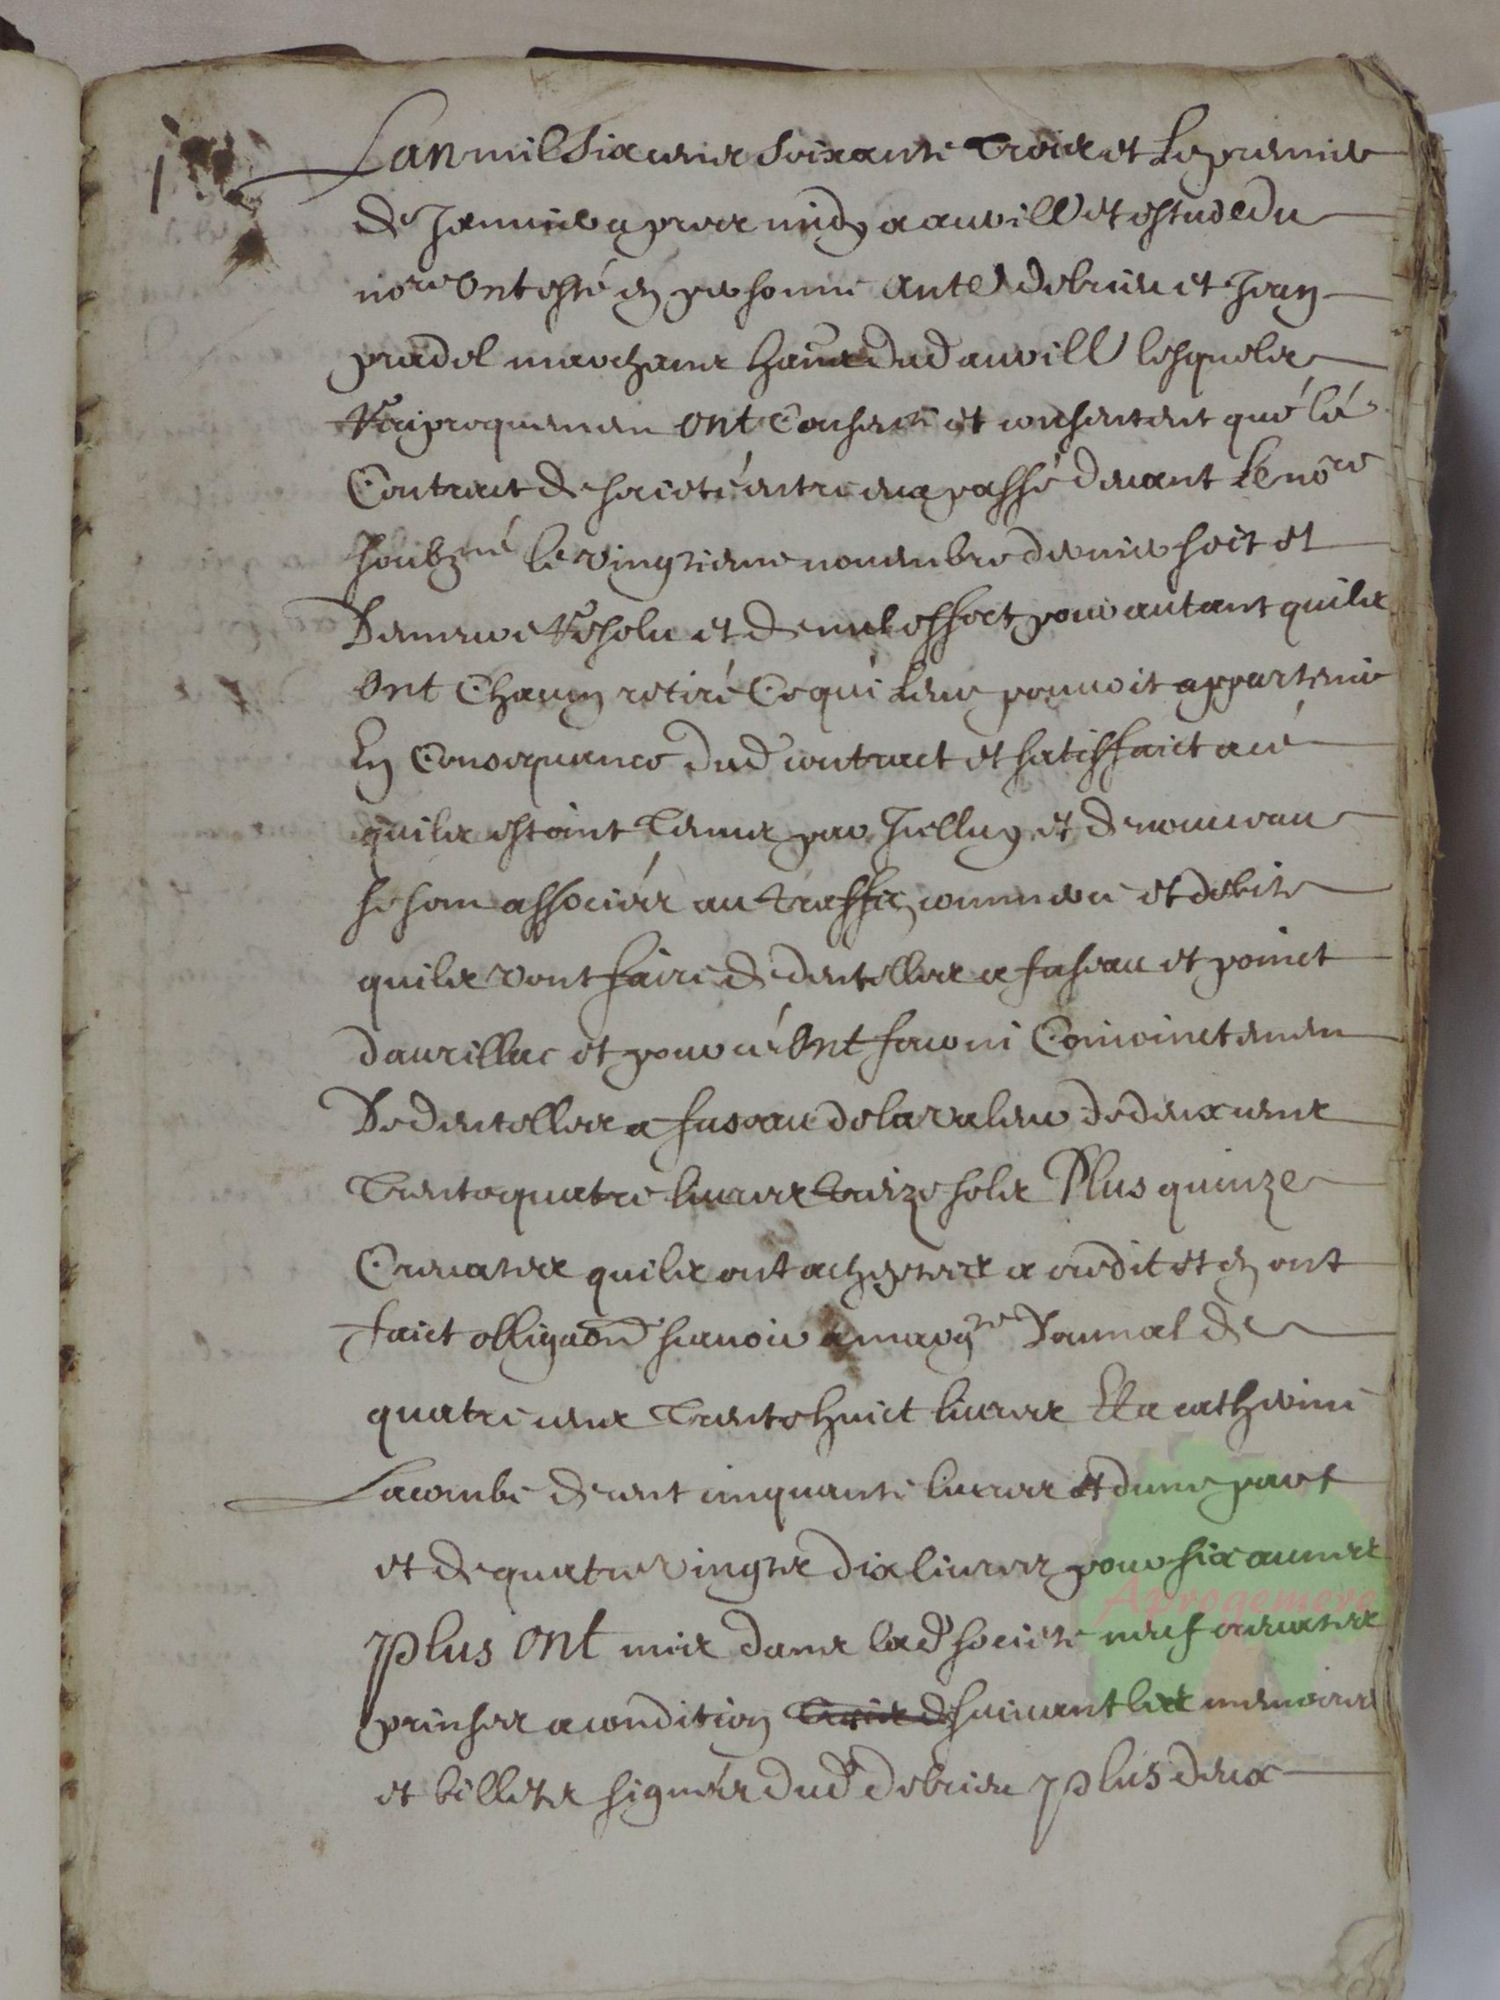 Lan mil six cens soixante trois et le premier
de Janvier apres midy a auvill et estude du
nore ont esté en personne Antl debrieu et Jean
pradel marchans hans dud auvill lesquels
Reciproquemen ont Consenti et consentent que lé
Contract de societé entre eux passé devant le nore
soubzné le vingtieme novembre dernier soit et
Demure Resolu et de nul effect pour autant quils
ont Chacun retiré Ce qui leur pouvoit appartenir
En Consequance dud contract et satisfaict a cé
quils estoint tenus par Icelluy et de nouveau
se son associés au traffic commerce et debite
quils vont faire de dentelles a fuseau et poinct
daurillac et pour cé ont fourni Conioinctemen
De dentelles a fuseau de la valeur de deux cens
Trente quatre livres treize sols Plus quinze
Cravates quils ont achetees a credit et en ont
faict obligaon scavoir a margte Daumal de
quatre cens trente huict livres Et a catherine
Lacombe de cent cinquante livres et dune part
et de quatre vingts dix livres pour six aunes
plus ont mis dans lad societe neuf cravates
prinses a condition suivant les memoires
et billets signés dud debrieu plus deux
Aprogemere